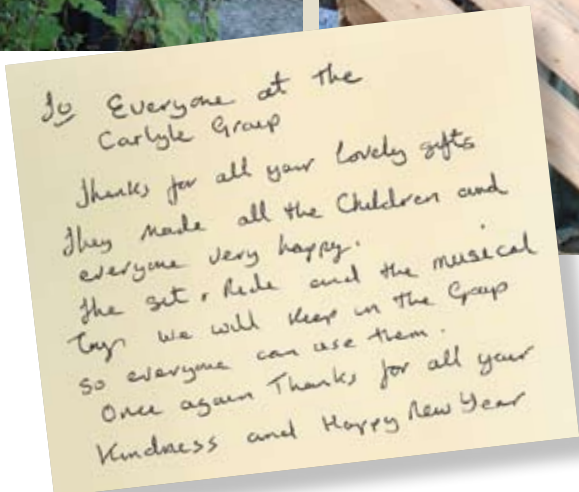 To Everyone at the
Carlyle Group
Thanks for all your lovely gifts
they made all the Children and
everyone very happy.
the sit & Ride and the musical
Toys we will keep in the Group
so everyone can use them.
Once again Thanks for all your
Kindness and Happy New Year